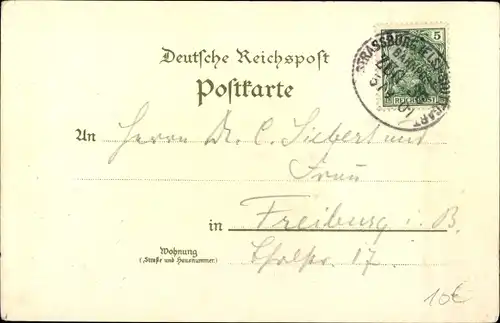 5
REICHSPOST
STRASSBURG (ELS)
BAHNPOST
ZUG
Deutsche Reichspost
Postkarte
An Herrn Dr. C. Siebert und
Frau
in Freiburg i. B.
Wohnung
(Straße und Hausnummer.)
17.
10€